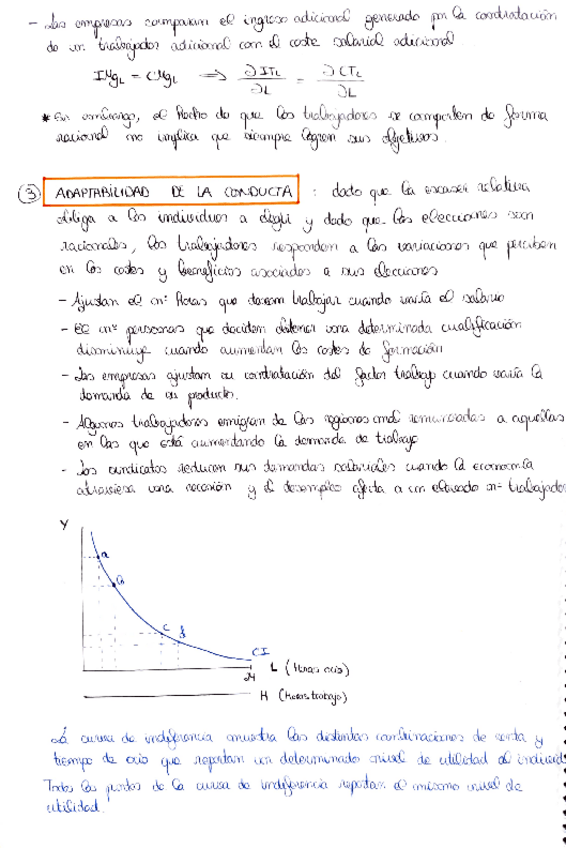 - Las empresas comparan el ingreso adicional generado por la contratación
de un trabajador adicional con el coste salarial adicional.
IMgL = CMgL ⟹ ∂ITL/∂L = ∂CTL/∂L
* Sin embargo, el hecho de que los trabajadores se comporten de forma
racional no implica que siempre logren sus objetivos.
③ ADAPTABILIDAD DE LA CONDUCTA : dado que la escasez relativa
obliga a los individuos a elegir y dado que las elecciones son
racionales, los trabajadores responden a las variaciones que perciben
en los costes y beneficios asociados a sus elecciones
- Ajustan el nº horas que desean trabajar cuando varía el salario
- El nº personas que deciden obtener una determinada cualificación
disminuye cuando aumentan los costes de formación
- Las empresas ajustan su contratación del factor trabajo cuando varía la
demanda de su producto.
- Algunos trabajadores emigran de las regiones mal remuneradas a aquellas
en las que está aumentando la demanda de trabajo
- Los sindicatos reducen sus demandas salariales cuando la economía
atraviesa una recesión y el desempleo afecta a un elevado nº trabajador
Y
a
b
c
d
CI
24
L (Horas ocio)
H (Horas trabajo)
La curva de indiferencia muestra las distintas combinaciones de renta y
tiempo de ocio que reportan un determinado nivel de utilidad al individ
Todos los puntos de la curva de indiferencia reportan el mismo nivel de
utilidad.